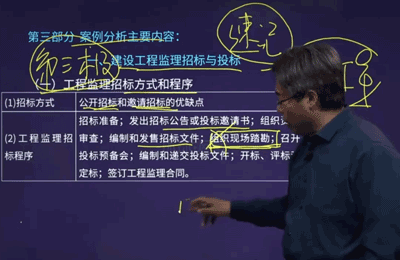 第三部分 案例分析主要内容:
速记
第三板
建设工程监理招标与投标
工程监理招标方式和程序
(1)招标方式
公开招标和邀请招标的优缺点
(2)工程监理招
标程序
招标准备；发出招标公告或投标邀请书；组织
审查；编制和发售招标文件；组织现场踏勘；召开
投标预备会；编制和递交投标文件；开标、评标
定标；签订工程监理合同。